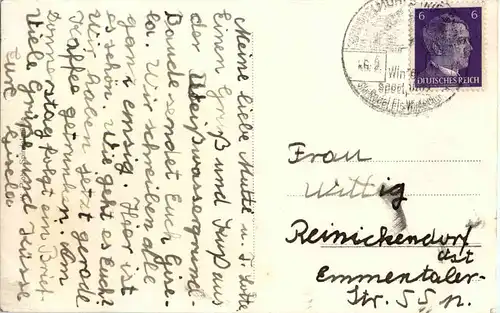 Meine liebe Mutti u. T. Lotte
Einen Gruß und Kuß aus
der Weißwassergrund-
Baude sendet Euch Gise-
la. Wir schreiben alle
ganz emsig. Hier ist
es schön. Wie geht es Euch?
Wir haben jetzt gerade
Kaffee getrunken. Am
Donnerstag folgt ein Brief.
Viele Grüße und Küsse
Eure Gisela
6 6
DEUTSCHES REICH
Winter
sport
Frau
Wittig
Reinickendorf
Ost
Emmentaler-
Str. 55 p.